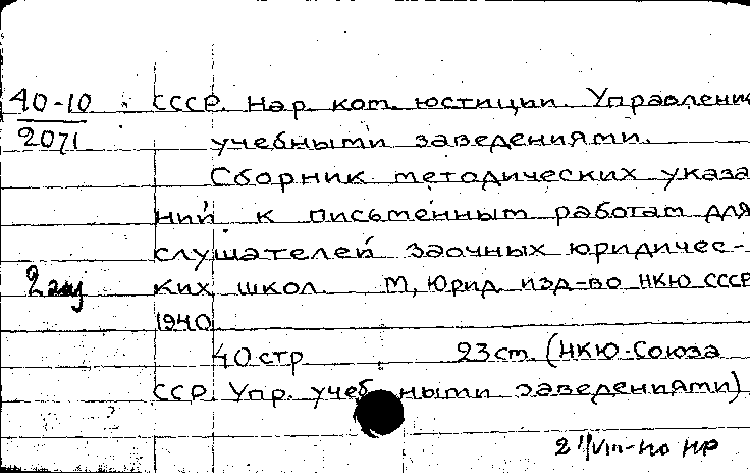 40-10 СССР. Нар. ком. юстиции. Управлени
2071 учебными заведениями.
Сборник методических указа
ний к письменным работам для
слушателей заочных юридичес-
ких школ. М, Юрид. изд-во НКЮ СССР
1940
40 стр 23 ст. (НКЮ-Союза
ССР. Упр. учебными заведениями)
НР